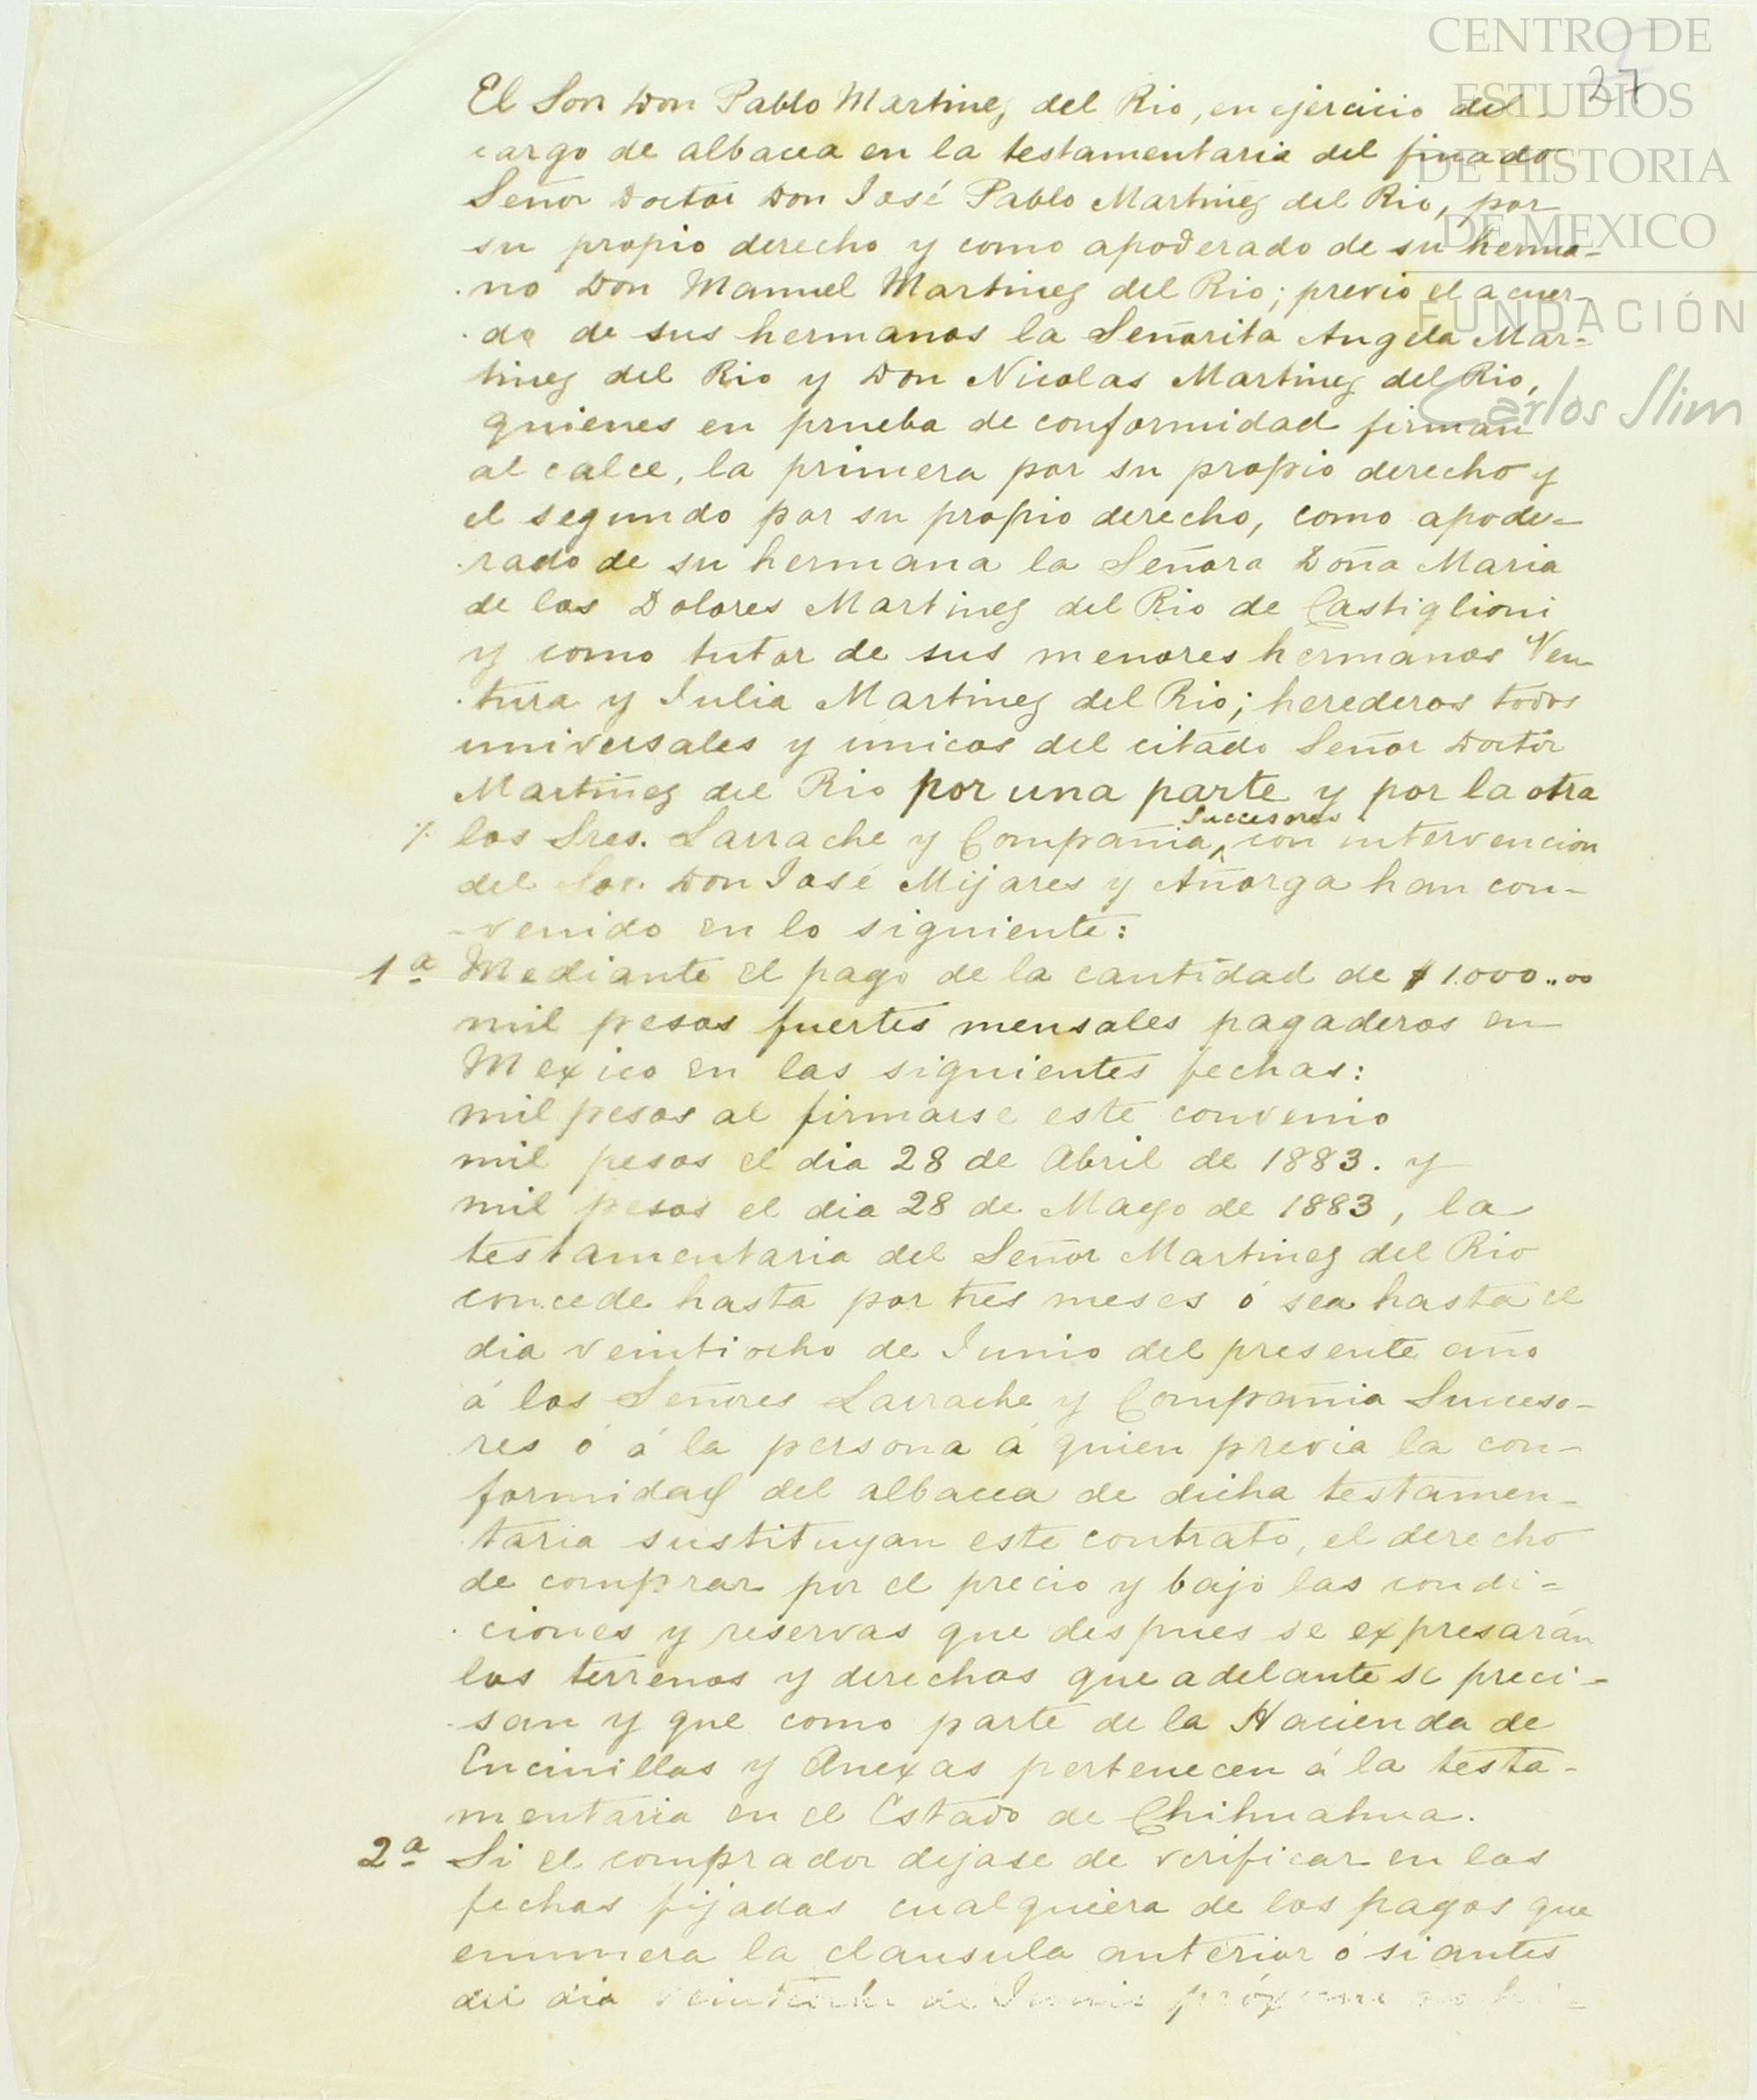 CENTRO DE
ESTUDIOS
DE HISTORIA
DE MEXICO
FUNDACIÓN
Carlos Slim
27
El Sor Don Pablo Martinez del Rio, en ejercicio del
cargo de albacea en la testamentaria del finado
Señor Doctor Don José Pablo Martinez del Rio, por
su propio derecho y como apoderado de su herma-
no Don Manuel Martinez del Rio; previo el acuer-
do de sus hermanos la Señorita Angela Mar-
tinez del Rio y Don Nicolas Martinez del Rio,
quienes en prueba de conformidad firman
al calce, la primera por su propio derecho y
el segundo por su propio derecho, como apode-
rado de su hermana la Señora Doña Maria
de los Dolores Martinez del Rio de Castiglioni
y como tutor de sus menores hermanos Ven
tura y Julia Martinez del Rio; herederos todos
universales y unicos del citado Señor Doctor
Martinez del Rio por una parte y por la otra
los Sres. Larrache y Compañia Succesores, con intervencion
del Sor. Don José Mijares y Añorga han con-
venido en lo siguiente:
1ª Mediante el pago de la cantidad de $1.000..00
mil pesos fuertes mensales pagaderos en
Mexico en las siguientes fechas:
mil pesos al firmarse este convenio
mil pesos el dia 28 de Abril de 1883. y
mil pesos el dia 28 de Mayo de 1883, la
testamentaria del Señor Martinez del Rio
concede hasta por tres meses ó sea hasta el
dia veintiocho de Junio del presente año
á los Señores Larrache y Compañia Succeso-
res ó á la persona á quien previa la con-
formidad del albacea de dicha testamen-
taria sustituyan este contrato, el derecho
de comprar por el precio y bajo las condi-
ciones y reservas que despues se expresarán
los terrenos y derechos que adelante se preci-
san y que como parte de la Hacienda de
Encinillas y Anexas pertenecen á la testa-
mentaria en el Estado de Chihuahua.
2ª Si el comprador dejase de verificar en las
fechas fijadas cualquiera de los pagos que
enumera la clausula anterior ó si antes
del dia veintiocho de Junio próximo